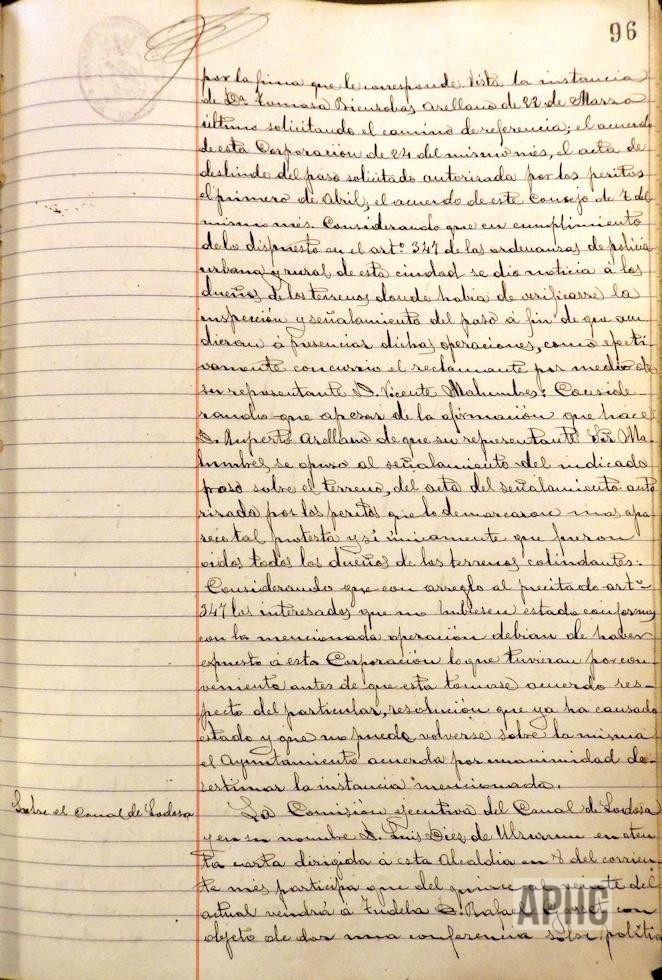 96
por la finca que le corresponde. Vista la instancia
de Dª Tomasa Bienzobas Arellano de 22 de Marzo
último solicitando el camino de referencia; el acuerdo
de esta Corporación de 24 del mismo més, el acta de
deslinde del paso solicitado autorizada por los peritos
el primero de Abril, el acuerdo de este Consejo de 7 del
mismo més. Considerando que en cumplimiento
de lo dispuesto en el artº 347 de las ordenanzas de policia
urbana y rural de esta ciudad se dió noticia á los
dueños de los terrenos donde habia de verificarse la
inspección y señalamiento del paso á fin de que acu-
dieran á presenciar dichas operaciones, como efecti-
vamente concurrió el reclamante por medio de
su representante D. Vicente Malumbres: Conside-
rando que apesar de la afirmación que hace
D. Ruperto Arellano de que su representante Sr. Ma-
lumbres, se opuso al señalamiento del indicado
paso sobre el terreno, del acta del señalamiento auto-
rizada por los peritos que lo demarcaron no apa-
rece tal protesta y si únicamente que fueron
oidos todos los dueños de los terrenos colindantes:
Considerando que con arreglo al precitado artº
347 los interesados que no hubiesen estado conformes
con la mencionada operación debian de haber
expuesto á esta Corporación lo que tuvieran por con-
veniente antes de que esta tomase acuerdo res-
pecto del particular, resolución que ya ha causado
estado y que no puede volverse sobre la misma
el Ayuntamiento acuerda por unanimidad de-
sestimar la instancia mencionada.
Sobre el Canal de Lodosa
La Comisión ejecutiva del Canal de Lodosa
y en su nombre D. Luis Diez de Ulzurrun en aten-
ta carta dirigida á esta Alcaldia en 8 del corrien-
te més participa que del quince al veinte del
actual vendrá á Tudela D. Rafael Gasset con
objeto de dar una conferencia sobre politica
APHC